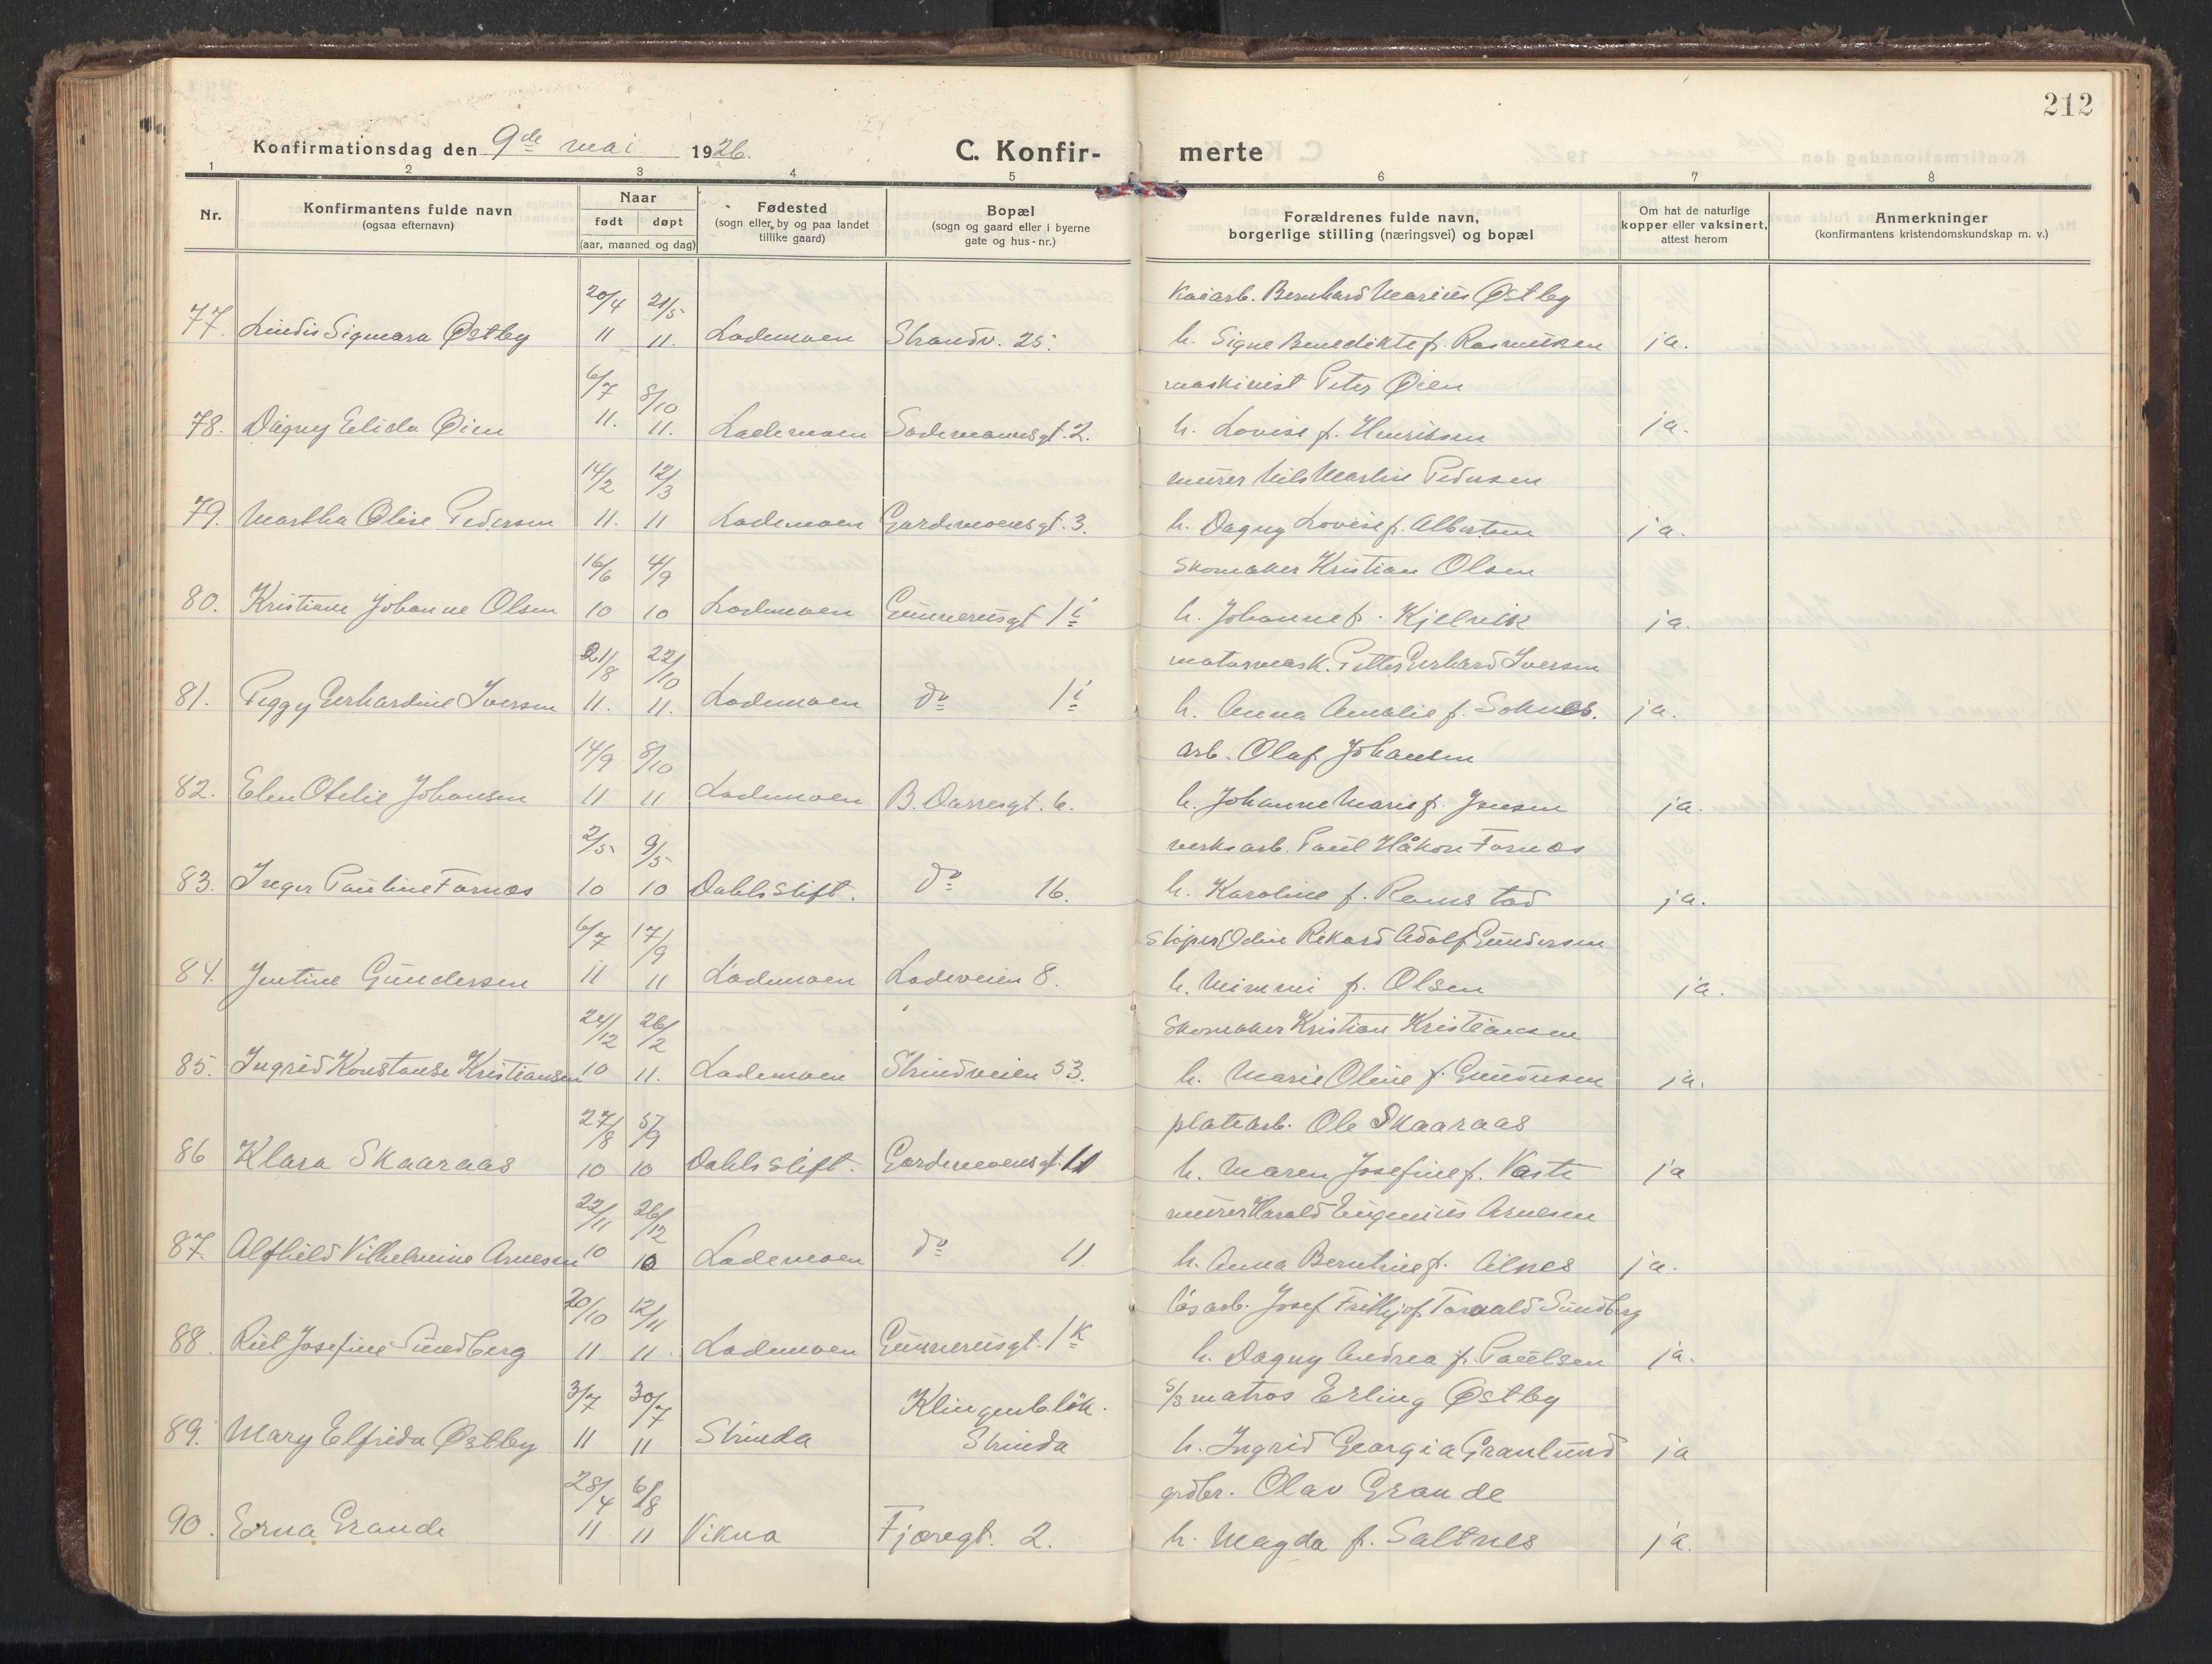 212
Konfirmationsdag den 9de mai 1926.
C. Konfir- merte
1 2 3 4 5 6 7 8
Nr.
Konfirmantens fulde navn
(ogsaa efternavn)
Naar
født døpt
(aar, maaned og dag)
Fødested
(sogn eller by og paa landet
tillike gaard)
Bopæl
(sogn og gaard eller i byerne
gate og hus-nr.)
Forældrenes fulde navn,
borgerlige stilling (næringsvei) og bopæl
Om hat de naturlige
kopper eller vaksinert,
attest herom
Anmerkninger
(konfirmantens kristendomskundskap m. v.)
20/4 21/5 Kaiarb. Bernhard Marius Østby
77. Lindis Sigmara Østby 11 11. Lademoen Strandv. 25. h. Signe Benedikte f. Rasmussen ja.
6/7 8/10 maskinist Peter Øien
78. Dagny Elida Øien 11. 11. Lademoen Sademannsgt. 2. h. Lovise f. Henriksen ja.
14/2 12/3 murer Nils Martin Pedersen
79. Martha Olise Pedersen 11. 11 Lademoen Gardemoensgt. 3. h. Dagny Lovise f. Albertsen ja.
16/6 4/9 Skomaker Kristian Olsen
80. Kristiane Johanne Olsen 10 10 Lademoen Gunnerusgt 1 i h. Johanne f. Kjelvik ja.
21/8 22/10 motormask. Petter Gerhard Iversen
81. Peggy Gerhardine Iversen 11. 11. Lademoen do 1 i h. Anna Amalie f. Soknes. ja.
14/9 8/10 arb. Olaf Johansen
82. Elen Otelie Johansen 11 11 Lademoen B. Darresgt. 6. h. Johanne Marie f. Jensen ja.
2/5 9/5 verksarb. Paul Håkon Fornæs
83. Inger Pauline Fornæs 10 10 Dahls stift. do 16. h. Karoline f. Ramstad ja.
6/7 17/9 Støper Odin Rikard Adolf Gundersen
84. Jentine Gundersen 11 11 Lademoen Ladeveien 8. h. Mimmi f. Olsen ja.
24/12 26/2 Skomaker Kristian Kristiansen
85. Ingrid Konstanse Kristiansen 10 11. Lademoen Strindveien 53. h. Marie Oline f. Gundersen ja.
27/8 5/9 platearb. Ole Skaaraas
86 Klara Skaaraas 10 10 Dahls stift. Gardemoensgt. 11 h. Maren Josefine f. Vaste ja
22/11 26/12 murer Harald Eugenius Arnesen
87. Alfhild Vilhelmine Arnesen 10 10 Lademoen do 11. h. Anna Berntine f. Alnes ja.
20/10 12/11 løsarb. Josef Frithjof Torvald Sundberg
88. Rut Josefine Sundberg 11 11. Lademoen Gunnerusgt. 1 k h. Dagny Andrea f. Paulsen ja.
3/7 30/7 Klingenb. løk. s/s matros Erling Østby
89. Mary Elfrida Østby 11 11 Strinda Strinda h. Ingrid Georgia Granlund ja
28/4 6/8 grdbr. Olav Grande
90. Erna Grande 11 11 Vikna Fjæregt. 2. h. Magda f. Saltnes ja.